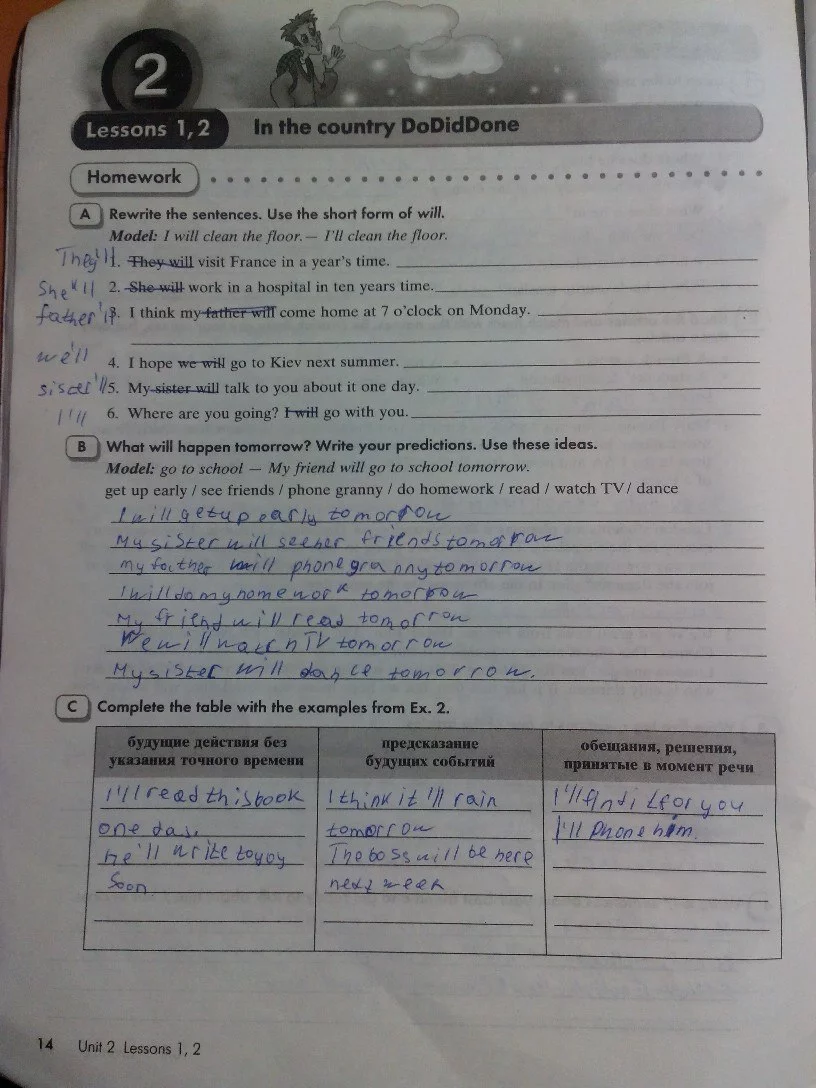 2
Lessons 1, 2 In the country DoDidDone
Homework
A Rewrite the sentences. Use the short form of will.
Model: I will clean the floor. — I'll clean the floor.
They'll 1. They will visit France in a year's time.
She'll 2. She will work in a hospital in ten years time.
father'll 3. I think my father will come home at 7 o'clock on Monday.
we'll 4. I hope we will go to Kiev next summer.
sister'll 5. My sister will talk to you about it one day.
I'll 6. Where are you going? I will go with you.
B What will happen tomorrow? Write your predictions. Use these ideas.
Model: go to school — My friend will go to school tomorrow.
get up early / see friends / phone granny / do homework / read / watch TV / dance
I will get up early tomorrow
My sister will see her friends tomorrow
my father will phone granny tomorrow
I will do my home work tomorrow
My friend will read tomorrow
We will watch TV tomorrow
My sister will dance tomorrow.
C Complete the table with the examples from Ex. 2.
будущие действия без предсказание обещания, решения,
указания точного времени будущих событий принятые в момент речи
I'll read this book I think it'll rain I'll find it for you
one day. tomorrow I'll phone him.
he'll write to you The boss will be here
soon. next week
14 Unit 2 Lessons 1, 2